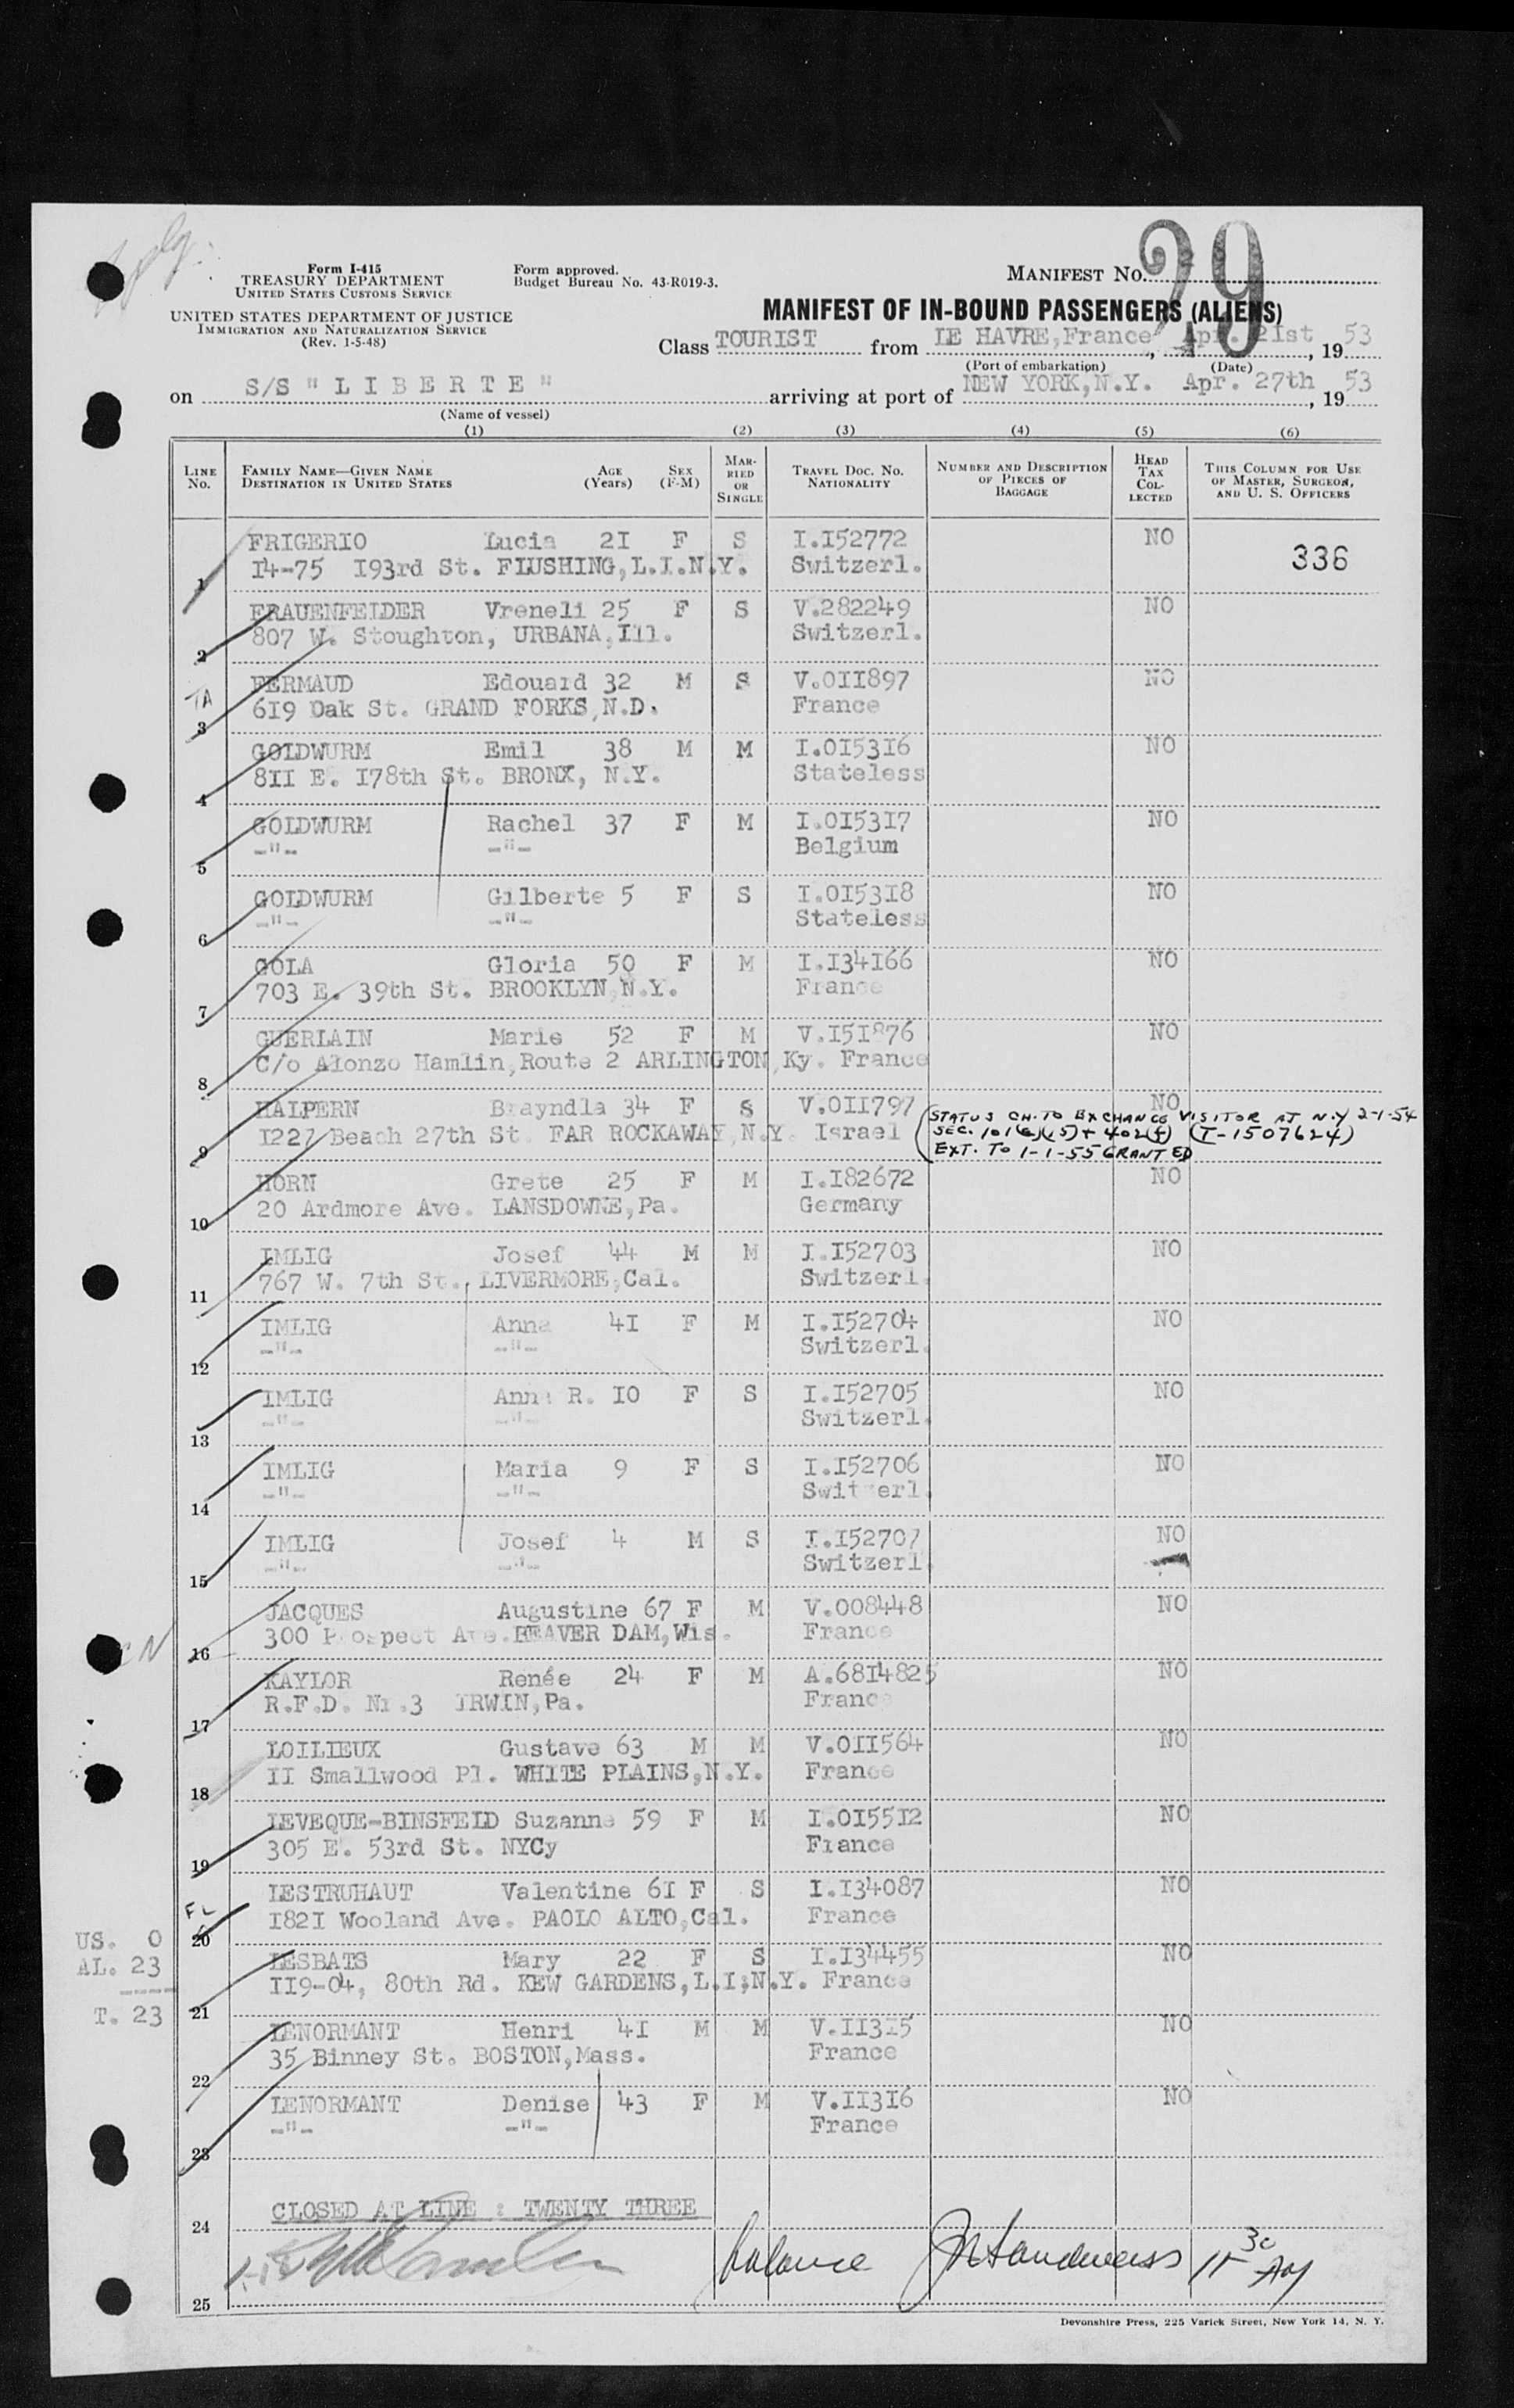 Form I-415
TREASURY DEPARTMENT
UNITED STATES CUSTOMS SERVICE
UNITED STATES DEPARTMENT OF JUSTICE
IMMIGRATION AND NATURALIZATION SERVICE
(Rev. 1-5-48)
Form approved.
Budget Bureau No. 43-R019-3.
MANIFEST NO. 29
MANIFEST OF IN-BOUND PASSENGERS (ALIENS)
Class TOURIST from LE HAVRE, France, Apr. 21st, 1953
(Port of embarkation) (Date)
on S/S "LIBERTE" arriving at port of NEW YORK, N.Y. Apr. 27th, 1953
(Name of vessel)
(1) (2) (3) (4) (5) (6)
LINE NO. FAMILY NAME—GIVEN NAME DESTINATION IN UNITED STATES AGE (Years) SEX (F-M) MARRIED OR SINGLE TRAVEL DOC. NO. NATIONALITY NUMBER AND DESCRIPTION OF PIECES OF BAGGAGE HEAD TAX COLLECTED THIS COLUMN FOR USE OF MASTER, SURGEON, AND U. S. OFFICERS
FRIGERIO Lucia 21 F S I.152772 NO
1 14-75 193rd St. FLUSHING, L.I.N.Y. Switzerl. 336
FRAUENFELDER Vreneli 25 F S V.282249 NO
2 807 W. Stoughton, URBANA, Ill. Switzerl.
TA FERMAUD Edouard 32 M S V.011897 NO
3 619 Oak St. GRAND FORKS, N.D. France
GOLDWURM Emil 38 M M I.015316 NO
4 811 E. 178th St. BRONX, N.Y. Stateless
GOLDWURM Rachel 37 F M I.015317 NO
5 -"- -"- Belgium
GOLDWURM Gilberte 5 F S I.015318 NO
6 -"- -"- Stateless
GOLA Gloria 50 F M I.134166 NO
7 703 E. 39th St. BROOKLYN N.Y. France
GUERLAIN Marie 52 F M V.151876 NO
8 C/o Alonzo Hamlin, Route 2 ARLINGTON, Ky. France
HALPERN Brayndla 34 F S V.011797 NO
9 1227 Beach 27th St. FAR ROCKAWAY, N.Y. Israel
STATUS CH. TO EXCHANGE VISITOR AT N.Y 2-1-54
SEC. 101(a)(15) + 402(f) (T-1507624)
EXT. TO 1-1-55 GRANTED
HORN Grete 25 F M I.182672 NO
10 20 Ardmore Ave. LANSDOWNE, Pa. Germany
IMLIG Josef 44 M M I.152703 NO
11 767 W. 7th St. LIVERMORE, Cal. Switzerl.
IMLIG Anna 41 F M I.152704 NO
12 -"- -"- Switzerl.
IMLIG Anna R. 10 F S I.152705 NO
13 -"- -"- Switzerl.
IMLIG Maria 9 F S I.152706 NO
14 -"- -"- Switzerl.
IMLIG Josef 4 M S I.152707 NO
15 -"- -"- Switzerl.
JACQUES Augustine 67 F M V.008448 NO
16 300 Prospect Ave. BEAVER DAM, Wis. France
KAYLOR Renée 24 F M A.6814825 NO
17 R.F.D. Nr.3 IRWIN, Pa. France
LOILIEUX Gustave 63 M M V.011564 NO
18 11 Smallwood Pl. WHITE PLAINS, N.Y. France
LEVEQUE-BINSFELD Suzanne 59 F M I.015512 NO
19 305 E. 53rd St. NYCy France
LESTRUHAUT Valentine 61 F S I.134087 NO
20 1821 Wooland Ave. PAOLO ALTO, Cal. France
LESBATS Mary 22 F S I.134455 NO
21 119-04, 80th Rd. KEW GARDENS, L.I;N.Y. France
US. 0
AL. 23
T. 23
LENORMANT Henri 41 M M V.11315 NO
22 35 Binney St. BOSTON, Mass. France
LENORMANT Denise 43 F M V.11316 NO
23 -"- -"- France
CLOSED AT LINE : TWENTY THREE
24
balance
25
Devonshire Press, 225 Varick Street, New York 14, N. Y.